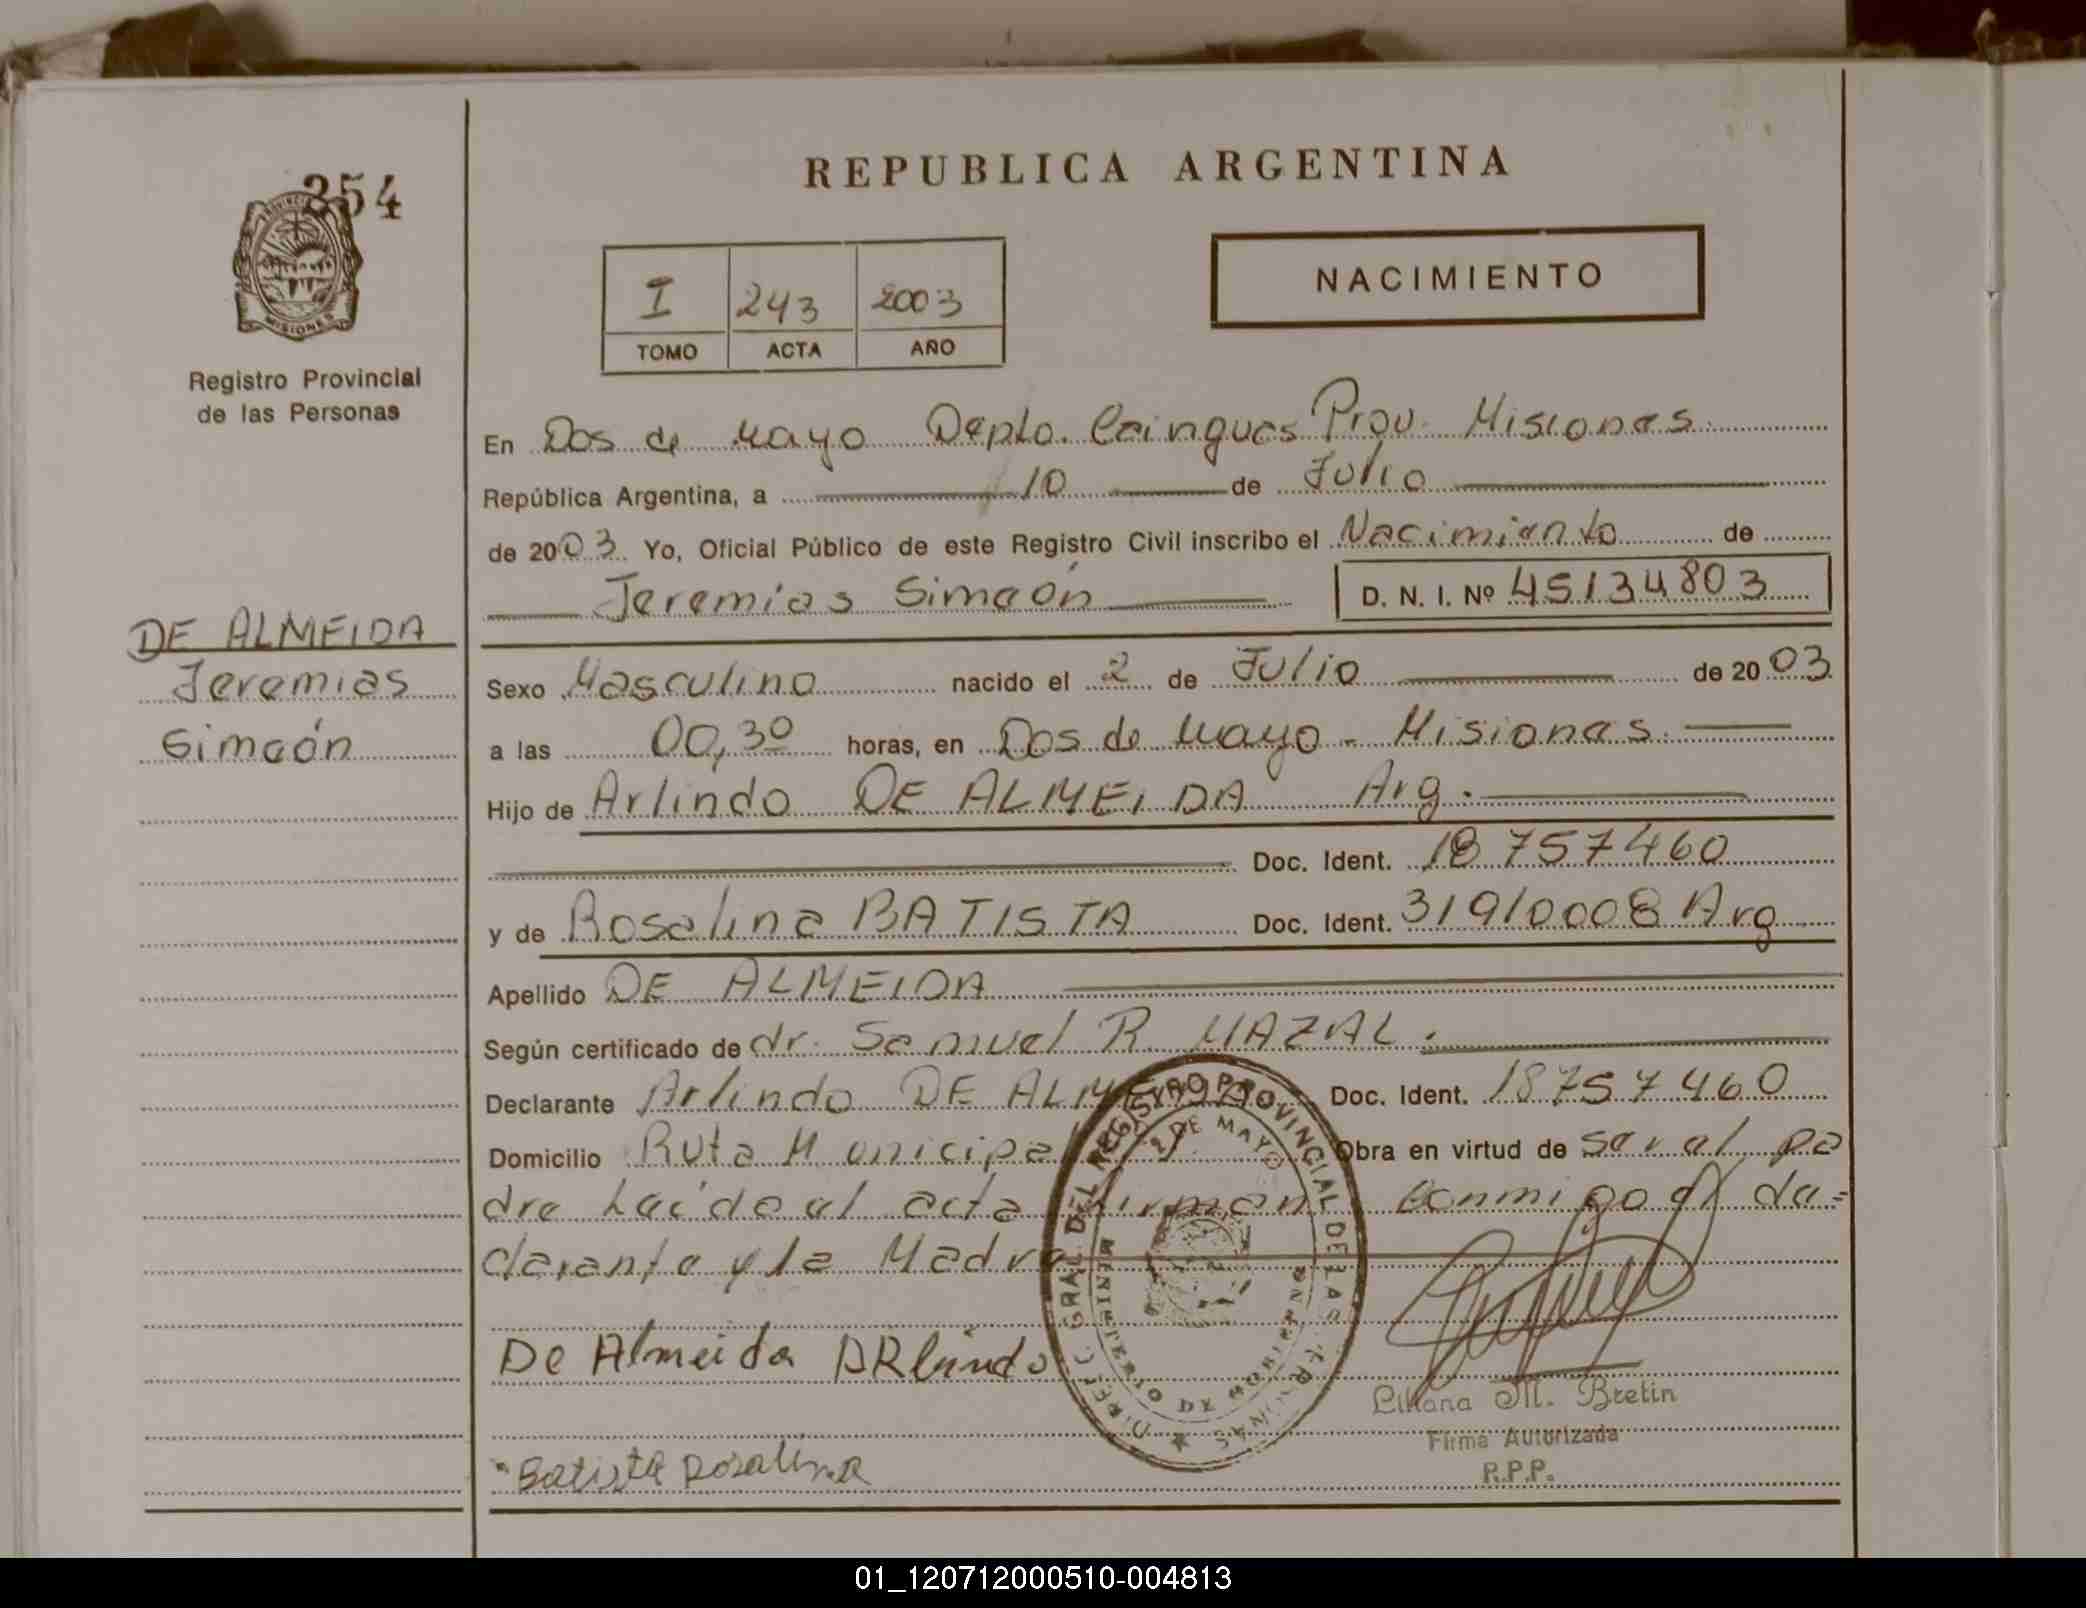 354
PROVINCIA
MISIONES
Registro Provincial
de las Personas
DE ALMEIDA
Jeremias
Simeón
REPUBLICA ARGENTINA
I 243 2003
TOMO ACTA AÑO
NACIMIENTO
En Dos de Mayo Depto. Cainguas Prov. Misiones.
República Argentina, a 10 de Julio
de 2003 Yo, Oficial Público de este Registro Civil inscribo el Nacimiento de
Jeremias Simeón D. N. I. Nº 45134803
Sexo Masculino nacido el 2 de Julio de 2003
a las 00,30 horas, en Dos de Mayo - Misiones.
Hijo de Arlindo DE ALMEIDA Arg.
Doc. Ident. 18757460
y de Rosalina BATISTA Doc. Ident. 31910008 Arg
Apellido DE ALMEIDA
Según certificado de dr. Samuel R. MAZAL.
Declarante Arlindo DE ALMEIDA Doc. Ident. 18757460
Domicilio Ruta Municipal Obra en virtud de ser el pa
dre Leída el acta firman conmigo el de=
clarante y la Madre
DIREC. GRAL. DEL REGISTRO PROVINCIAL DE LAS PERSONAS
2 DE MAYO
MINISTERIO DE GOBIERNO
De Almeida ARlindo
Batista Rosalina
Liliana M. Bretin
Firma Autorizada
R.P.P.
01_120712000510-004813